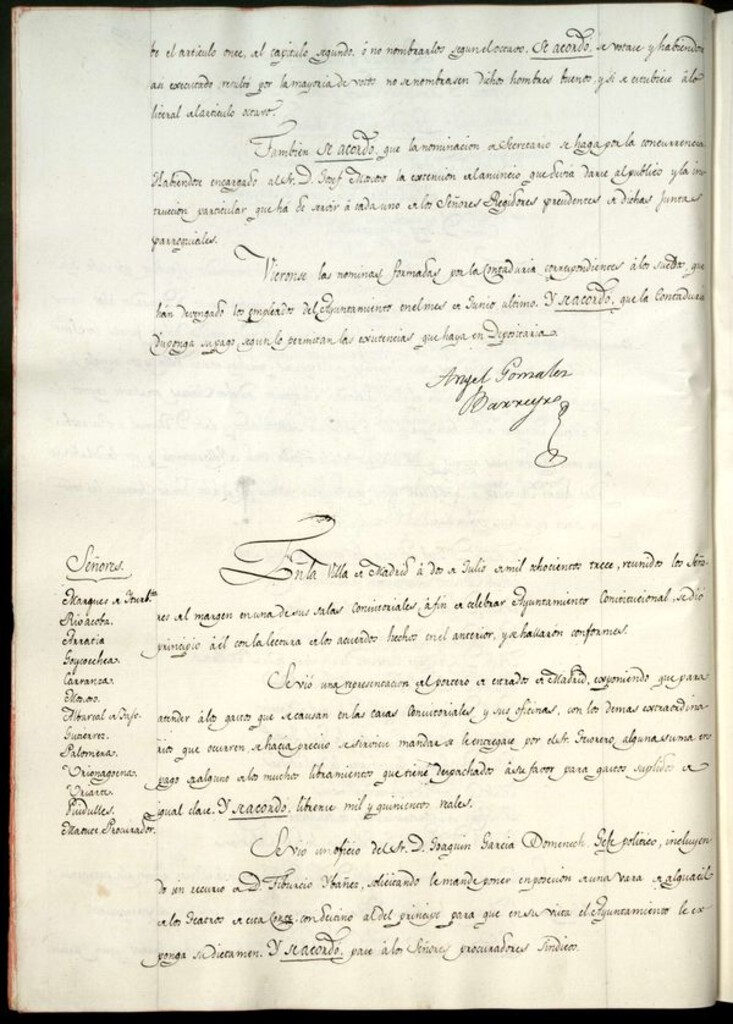 te el articulo once, al capitulo segundo, ó no nombrarlos segun el octavo. Se acordó, se votase y habiendose
asi executado, resultó por la mayoria de votos no se nombrasen dichos hombres buenos, y si se estubiese á lo
literal al articulo octavo.
Tambien se acordó, que la nominacion de Secretario se haga por la concurrencia
Habiendose encargado al Sr. D. Josef la extension al anuncio que devia darse al publico y la ins-
truccion particular que há de servir á cada uno de los Señores Regidores precidentes de dichas Juntas
parroquiales.
Vieronse las nominas formadas por la Contaduria correspondientes á los sueldos, que
hán devengado los empleados del Ayuntamiento en el mes de Junio ultimo. Y se acordó, que la Contaduria
disponga su pago segun lo permitan las existencias que haya en Depositaria.
Angel Gonzalez
Barreyro
Señores.
Marques de Iturb.ta
Rioacoba.
Arratia
Goycoechea.
Carranza.
Albareal de Tajo.
Gutierrez.
Palomera.
Urionagoena.
Uriarte.
Matute Procurador.
En la Villa de Madrid á dos de Julio de mil ochocientos trece, reunidos los Seño-
res al margen en una de sus salas Consistoriales, á fin de celebrar Ayuntamiento Constitucional, se dió
principio á él con la lectura de los acuerdos hechos en el anterior, y se hallaron conformes.
Se vió una representacion al portero de estrados de Madrid, exponiendo que para
atender á los gastos que se causan en las casas Consistoriales y sus oficinas, con los demas extraordina
rios que ocurren, se hacia preciso se sirviese mandar se le entregase por el Sr. Tesorero, alguna suma en
pago de alguno de los muchos libramientos que tiene despachados á su favor para gastos suplidos de
igual clase. Y se acordó, librense mil y quinientos reales.
Se vió un oficio del Sr. D. Joaquin Garcia Domenech, Gefe politico, incluyen
do un recurso de D. Tiburcio Ybañez, solicitando se mande poner en posesion de una vara de alguacil
de los teatros de esta Corte, con destino al del principe para que en su vista el Ayuntamiento le ex-
ponga su dictamen. Y se acordó, pase á los Señores procuradores Sindicos.